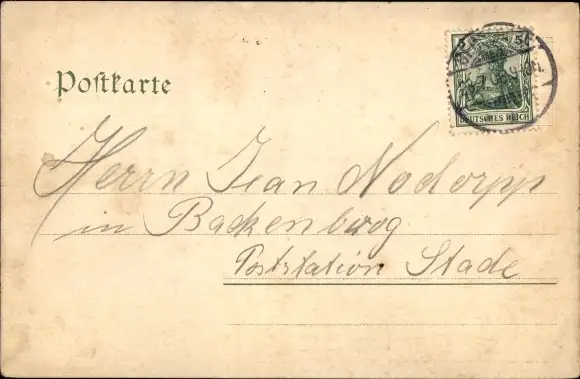 Postkarte
DEUTSCHES REICH
Herrn Jean Nodorpp
in Backenbwog
Poststation Stade